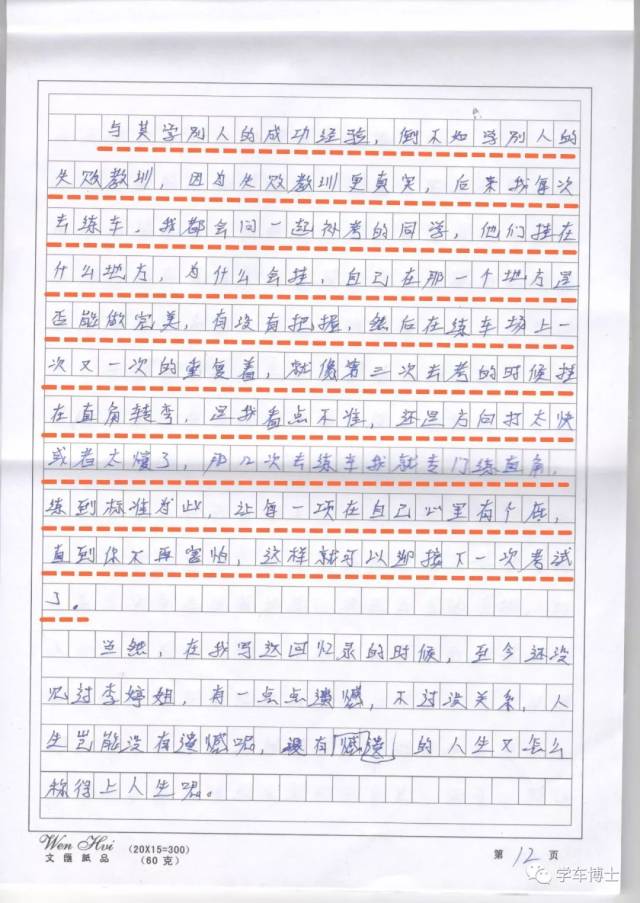 与其学别人的成功经验，倒不如学别人的
失败教训，因为失败教训更真实，后来我每次
去练车，我都会问一起补考的同学，他们挂在
什么地方，为什么会挂，自己在那一个地方是
否能做完美，有没有把握，然后在练车场上一
次又一次的重复着，就像第三次去考的时候挂
在直角转弯，是我看点不准，还是方向打太快
或者太慢了，那几次去练车我就专门练直角，
练到标准为此，让每一项在自己心里有个底，
直到你不再害怕，这样就可以迎接下一次考试
了。
当然，在我写这回忆录的时候，至今还没
见过李婷姐，有一点点遗憾，不过没关系，人
生岂能没有遗憾呢，没有憾遗的人生又怎么
称得上人生呢。
Wen Hvi
文匯紙品
(20X15=300)
(60克)
第12页
学车博士